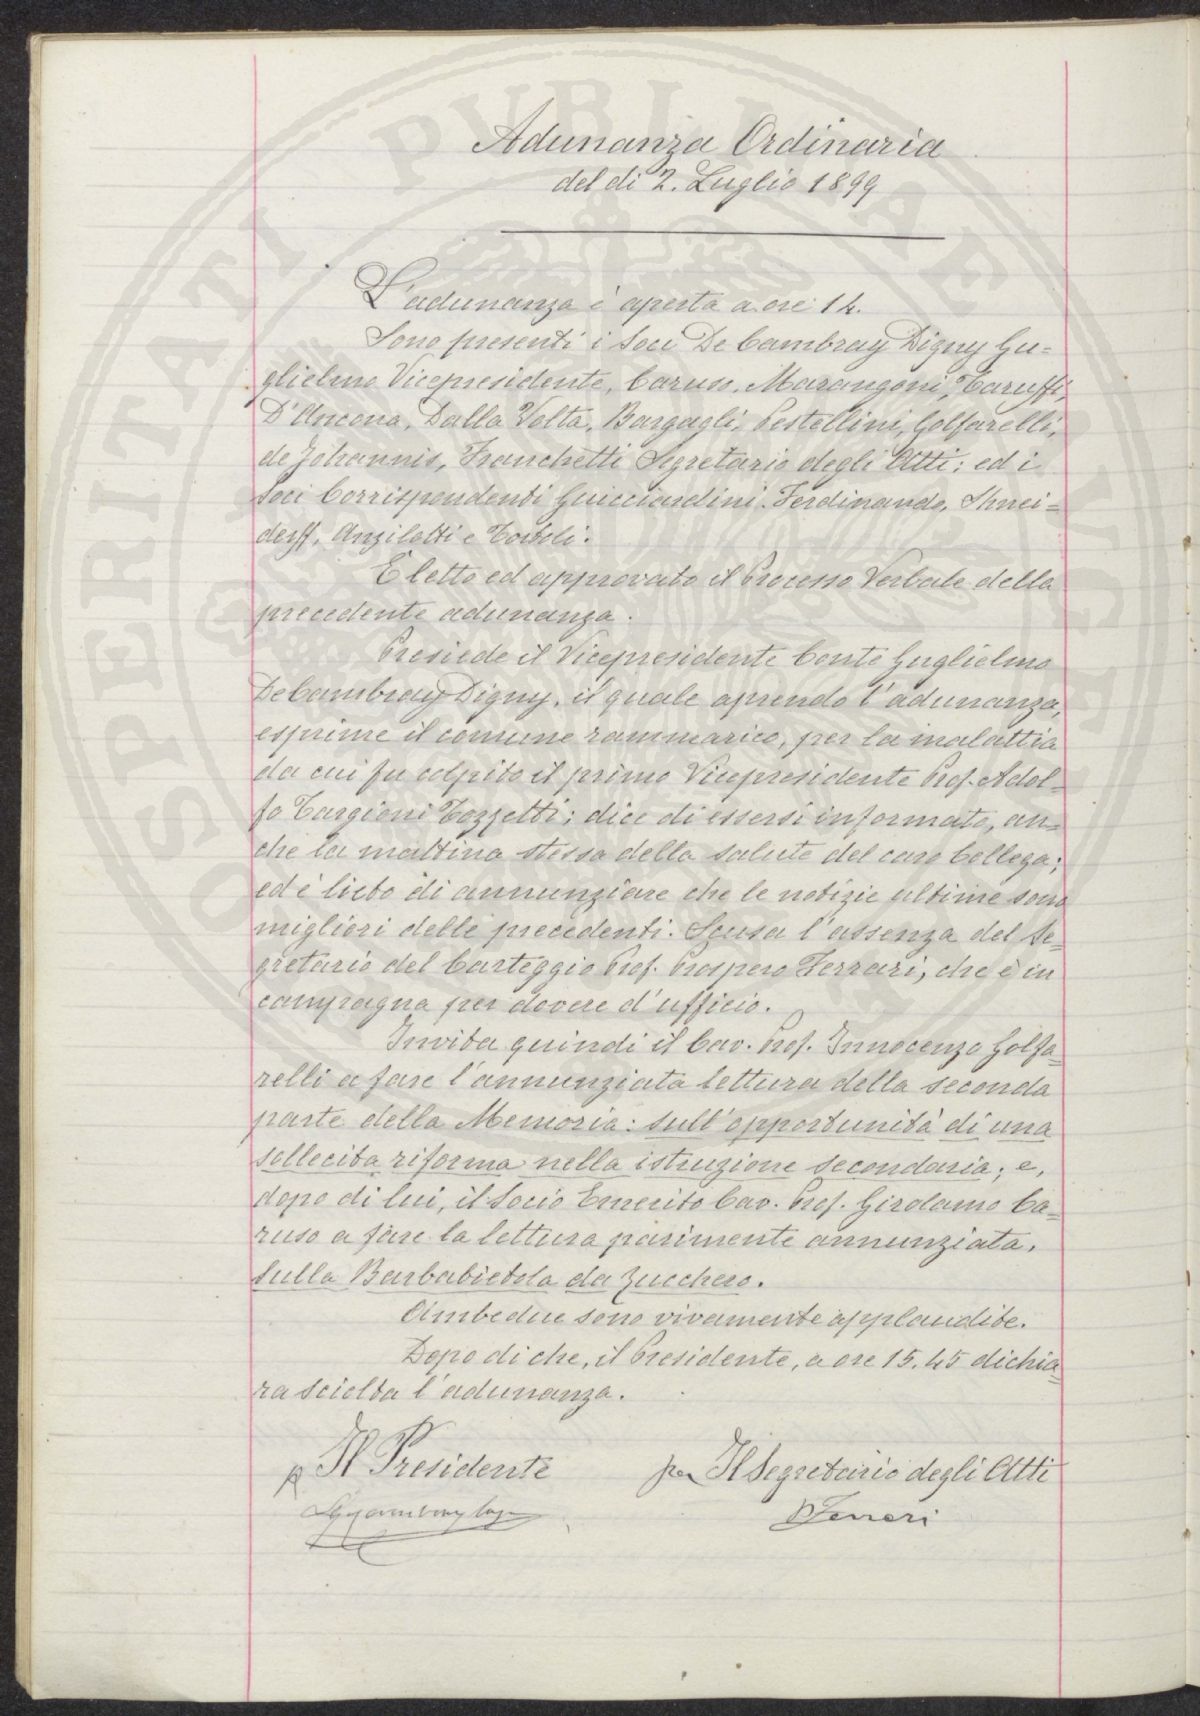 Adunanza Ordinaria
del di 2. Luglio 1899
L'adunanza è aperta a ore 14.
Sono presenti i Soci De Cambray Digny Gu=
glielmo Vicepresidente, Caruso, Marangoni, Taruffi,
D'Ancona, Dalla Volta, Bargagli, Pestellini, Golfarelli,
de Johannis, Franchetti Segretario degli Atti; ed i
Soci Corrispondenti Guicciardini Ferdinando, Shnei=
derff, Anzilotti e Tortoli.
È letto ed approvato il Processo Verbale della
precedente adunanza.
Presiede il Vicepresidente Conte Guglielmo
De Cambray Digny, il quale aprendo l'adunanza,
esprime il comune rammarico, per la malattia
da cui fu colpito il primo Vicepresidente Prof. Adol=
fo Targioni Tozzetti; dice di essersi informato, an=
che la mattina stessa della salute del caro Collega;
ed è lieto di annunziare che le notizie ultime sono
migliori delle precedenti. Scusa l'assenza del Se=
gretario del Carteggio Prof. Prospero Ferrari, che è in
campagna per dovere d'ufficio.
Invita quindi il Cav. Prof. Innocenzo Golfa=
relli a fare l'annunziata lettura della seconda
parte della Memoria: sull'opportunità di una
sollecita riforma nella istruzione secondaria; e,
dopo di lui, il Socio Emerito Cav. Prof. Girolamo Ca=
ruso a fare la lettura parimente annunziata,
sulla Barbabietola da Zucchero.
Ambedue sono vivamente applaudite.
Dopo di che, il Presidente, a ore 15.45 dichia=
ra sciolta l'adunanza.
p Il Presidente per Il Segretario degli Atti
PFerrari
PROSPERITATI PUBLICAE AUGENDAE